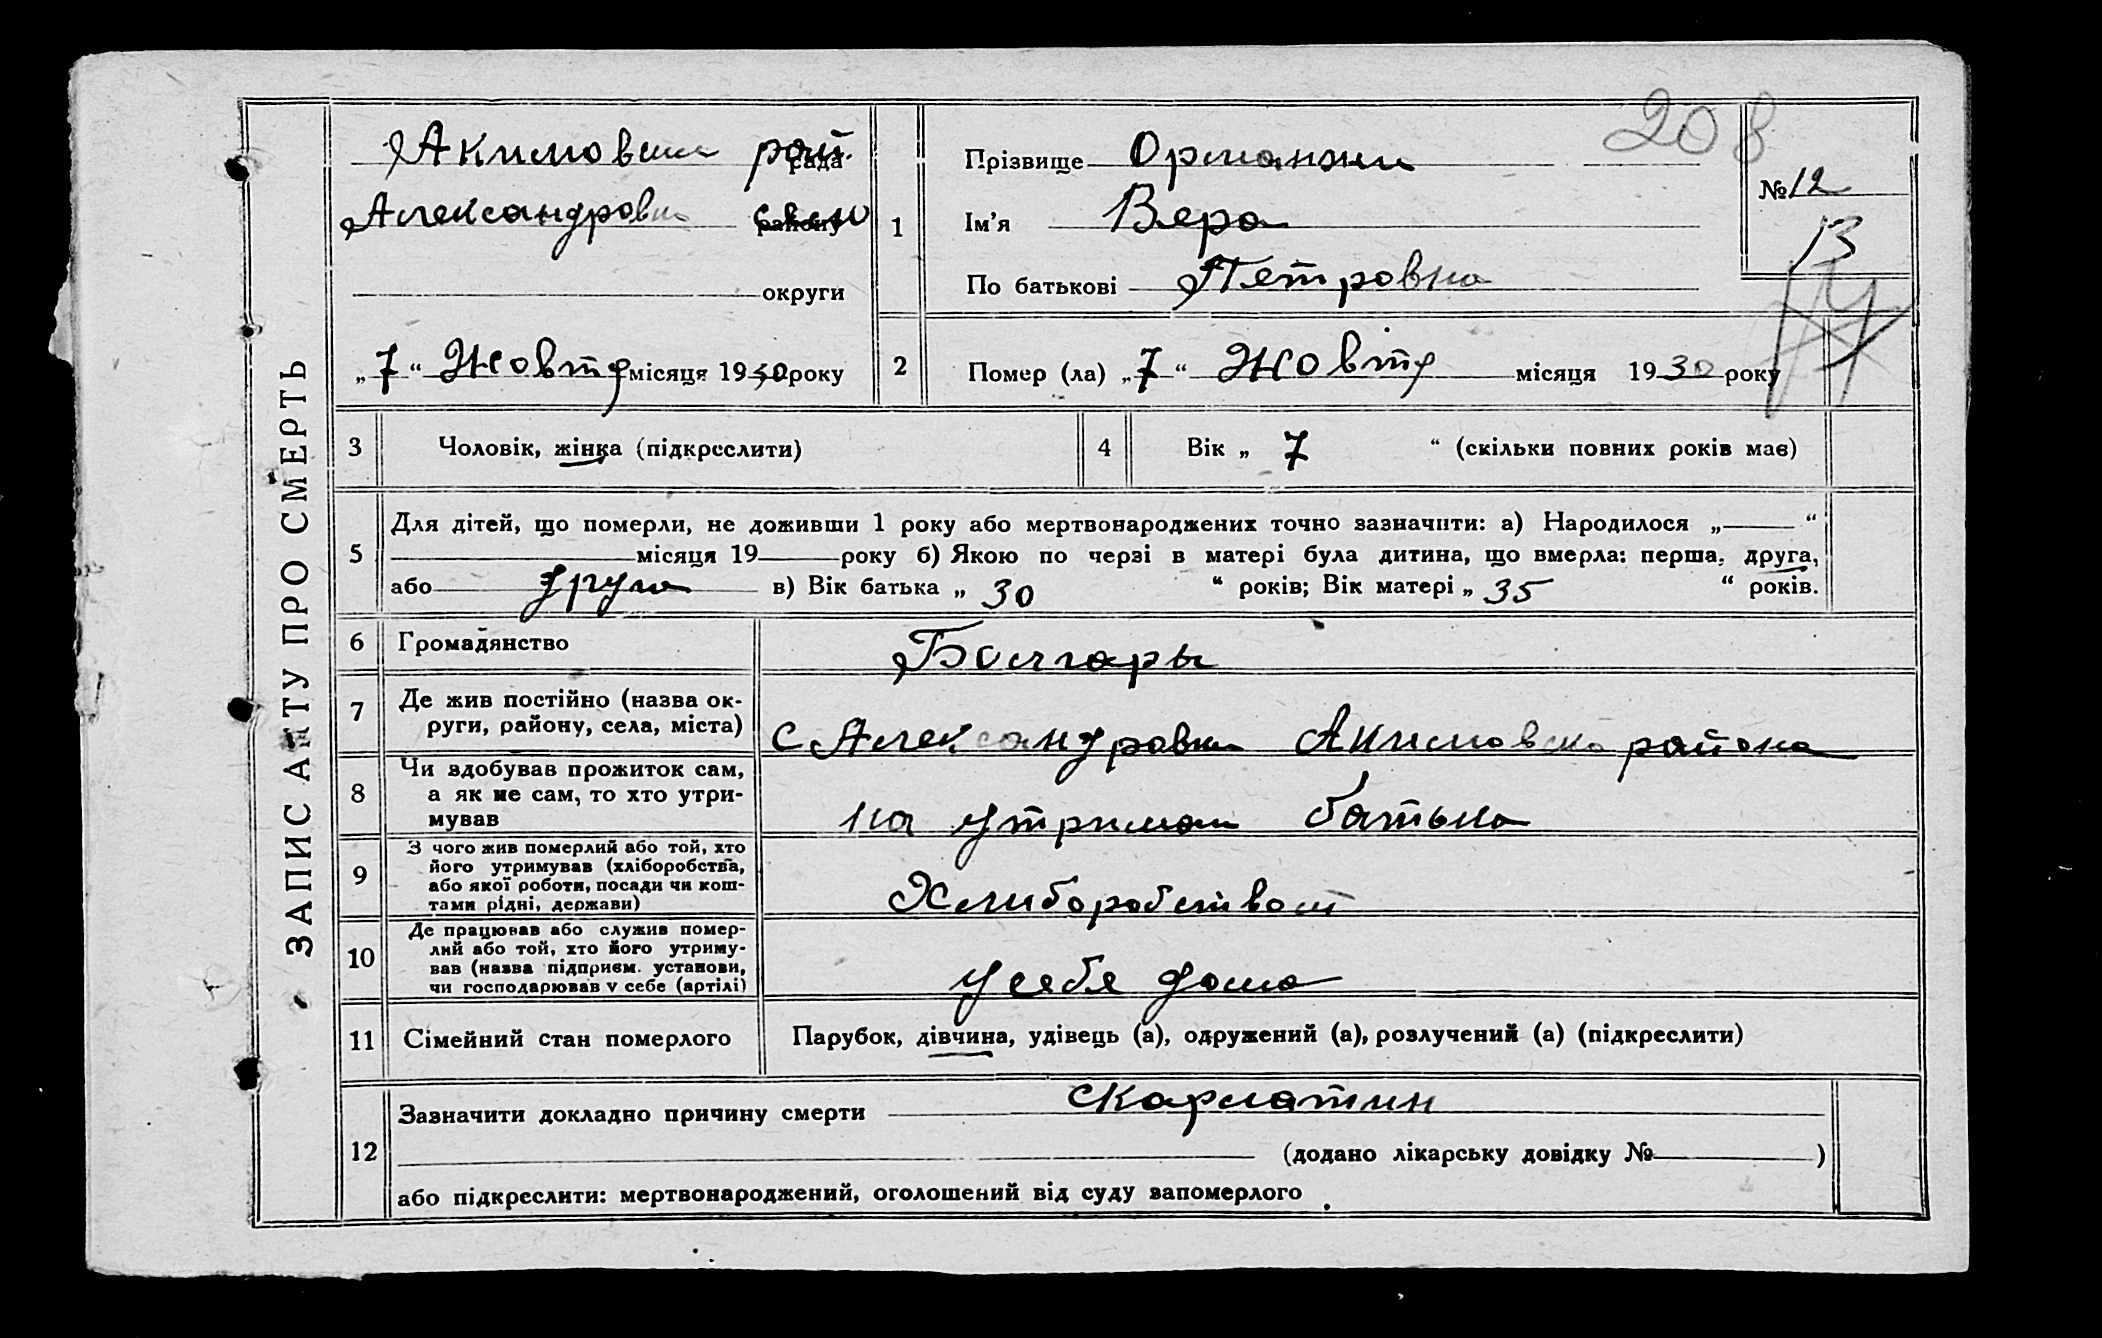 ЗАПИС АКТУ ПРО СМЕРТЬ
208
Акимовски рай рада
Александровка село району
округи
„7“ Жовтр місяця 1930 року
1
Прізвище Орманжи
Ім'я Вера
По батькові Петровна
№ 12
13
2
Помер (ла) „7“ Жовтр місяця 1930 року
3
Чоловік, жінка (підкреслити)
4
Вік „ 7 “ (скільки повних років має)
5
Для дітей, що померли, не доживши 1 року або мертвонароджених точно зазначити: а) Народилося „ “
місяця 19 року б) Якою по черзі в матері була дитина, що вмерла: перша, друга,
або друга в) Вік батька „ 30 “ років; Вік матері „ 35 “ років.
6
Громадянство
Болгары
7
Де жив постійно (назва ок-
руги, району, села, міста)
с Александровка Акимовско района
8
Чи здобував прожиток сам,
а як не сам, то хто утри-
мував
на утриман батька
9
З чого жив померлий або той, хто
його утримував (хліборобства,
або якої роботи, посади чи кош-
тами рідні, держави)
Хлиборобством
10
Де працював або служив помер-
лий або той, хто його утриму-
вав (назва підприєм. установи,
чи господарював у себе (артілі)
у себе дома
11
Сімейний стан померлого
Парубок, дівчина, удівець (а), одружений (а), розлучений (а) (підкреслити)
12
Зазначити докладно причину смерти скарлатин
(додано лікарську довідку № )
або підкреслити: мертвонароджений, оголошений від суду запомерлого